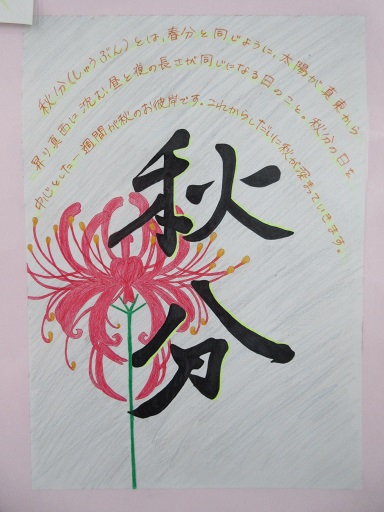 秋分(しゅうぶん)とは、春分と同じように、太陽が真東から
昇り真西に沈む、昼と夜の長さが同じになる日のこと。秋分の日を
中心とした一週間が秋のお彼岸です。これからしだいに秋が深まっていきます。
秋分